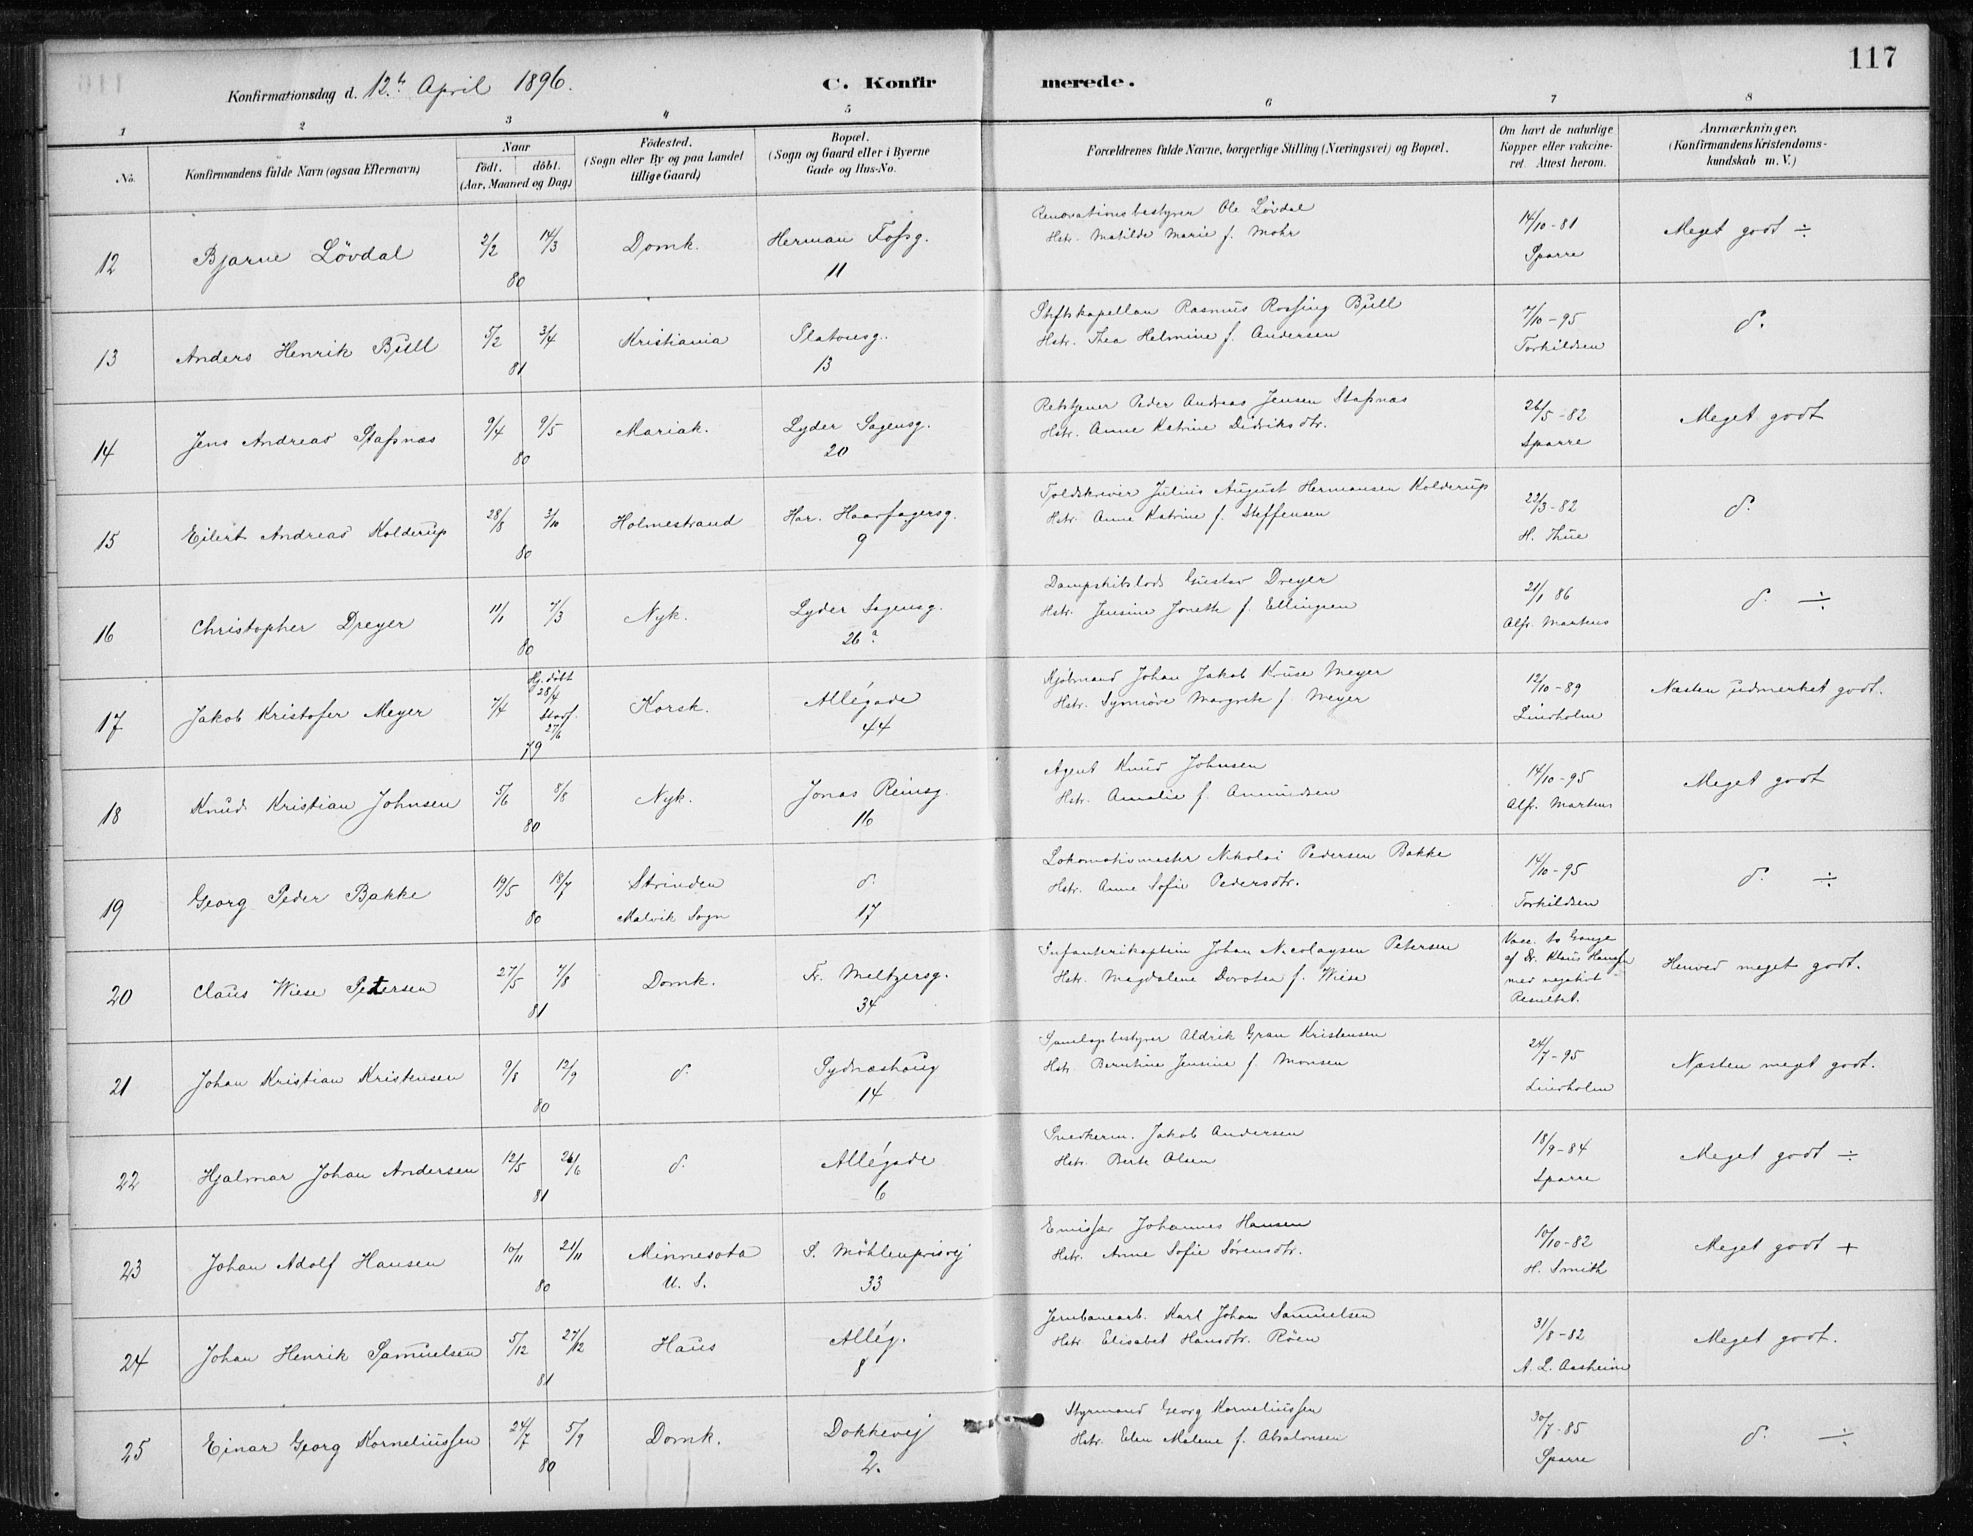 117
Konfirmationsdag d. 12te April 1896.
C. Konfirmerede.
1 2 3 4 5 6 7 8
No.
Konfirmandens fulde Navn (ogsaa Efternavn)
Naar
födt. döbt.
(Aar, Maaned og Dag.)
Födested.
(Sogn eller By og paa Landet tillige Gaard)
Bopæl.
(Sogn og Gaard eller i Byerne Gade og Hus-No.
Forældrenes fulde Navne, borgerlige Stilling (Næringsvei) og Bopæl.
Om havt de naturlige Kopper eller vakcineret. Attest herom.
Anmærkninger.
(Konfirmandens Kristendomskundskab m. V.)
12 Bjarne Lövdal 2/2 14/3 80 Domk. Herman Fossg. 11
Renovationsbestyrer Ole Lövdal
Hstr. Matilde Marie f. Mohr
14/10-81 Sparre
Meget godt ÷
13 Anders Henrik Bull 5/2 3/4 81 Kristiania Platousg. 13
Stiftskapellan Rasmus Rossing Bull
Hstr. Thea Helmine f. Andersen
7/10-95 Torkildsen
d.
14 Jens Andreas Stafsnæs 9/4 9/5 80 Mariak. Lyder Sagensg. 20
Retstjener Peder Andreas Jensen Stafsnæs
Hstr. Anne Katrine Didriksdtr.
26/5-82 Sparre
Meget godt
15 Eilert Andreas Kolderup 28/8 3/10 80 Holmestrand Har. Haarfagersg. 9
Toldskriver Julius August Hermansen Kolderup
Hstr. Anne Katrine f. Steffensen
22/3-82 H. Thue
d.
16 Christopher Dreyer 11/1 7/3 80 Nyk. Lyder Sagensg. 26a
Dampskibslods Gustav Dreyer
Hstr. Jensine Jonette f. Ellingsen
21/1 86 Alfr. Martens
d. ÷
17 Jakob Kristofer Meyer 7/4 Hj. döbt 28/4 Stadf. 27/6 79 Korsk. Allégade 44
Kjöbmand Johan Jakob Kruse Meyer
Hstr. Synnöve Margrete f. Meyer
12/10-89 Lindholm
Næsten udmerket godt.
18 Knud Kristian Johnsen 5/6 8/8 80 Nyk. Jonas Reinsg. 16
Agent Knud Johnsen
Hstr. Amalie f. Amundsen
14/10-95 Alfr. Martens
Meget godt
19 Georg Peder Bakke 19/5 18/7 80 Strinden Malvik Sogn d. 17
Lokomotivmester Nikolai Pedersen Bakke
Hstr. Anne Sofie Pedersdtr.
14/10-95 Torkildsen
d. ÷
20 Claus Wiese Petersen 27/5 7/8 81 Domk. Fr. Meltzersg. 34
Infanterikaptein Johan Nicolaysen Petersen
Hstr. Magdalene Dorotea f. Wiese
Vacc. to Gange af Dr. Klaus Hanssen med negativt Resultat.
Henved meget godt.
21 Johan Kristian Kristensen 9/8 12/9 80 d. Sydnæshaug 14
Samlagsbestyrer Aldrik Gran Kristensen
Hstr. Berntine Jensine f. Monsen
24/7-95 Lindholm
Næsten meget godt.
22 Hjalmar Johan Andersen 12/5 26/6 81 d. Allégade 6
Snedkerm. Jakob Andersen
Hstr. Berte Olsen
18/9-84 Sparre
Meget godt ÷
23 Johan Adolf Hansen 10/11 21/11 80 Minnesota U. S. S. Möhlenprisvej 33
Emissær Johannes Hansen
Hstr. Anne Sofie Sörensdtr.
10/10-82 H. Smith
Meget godt +
24 Johan Henrik Samuelsen 5/12 27/12 81 Haus Allég. 8
Jernbanearb. Karl Johan Samuelsen
Hstr. Elisabet Hansdtr. Röen
31/8-82 A. L. Aasheim
Meget godt.
25 Einar Georg Korneliussen 24/7 5/9 80 Domk. Dokkevej 2.
Styrmand Georg Korneliussen
Hstr. Elen Malene f. Absalonsen
30/7-85 Sparre
d. ÷